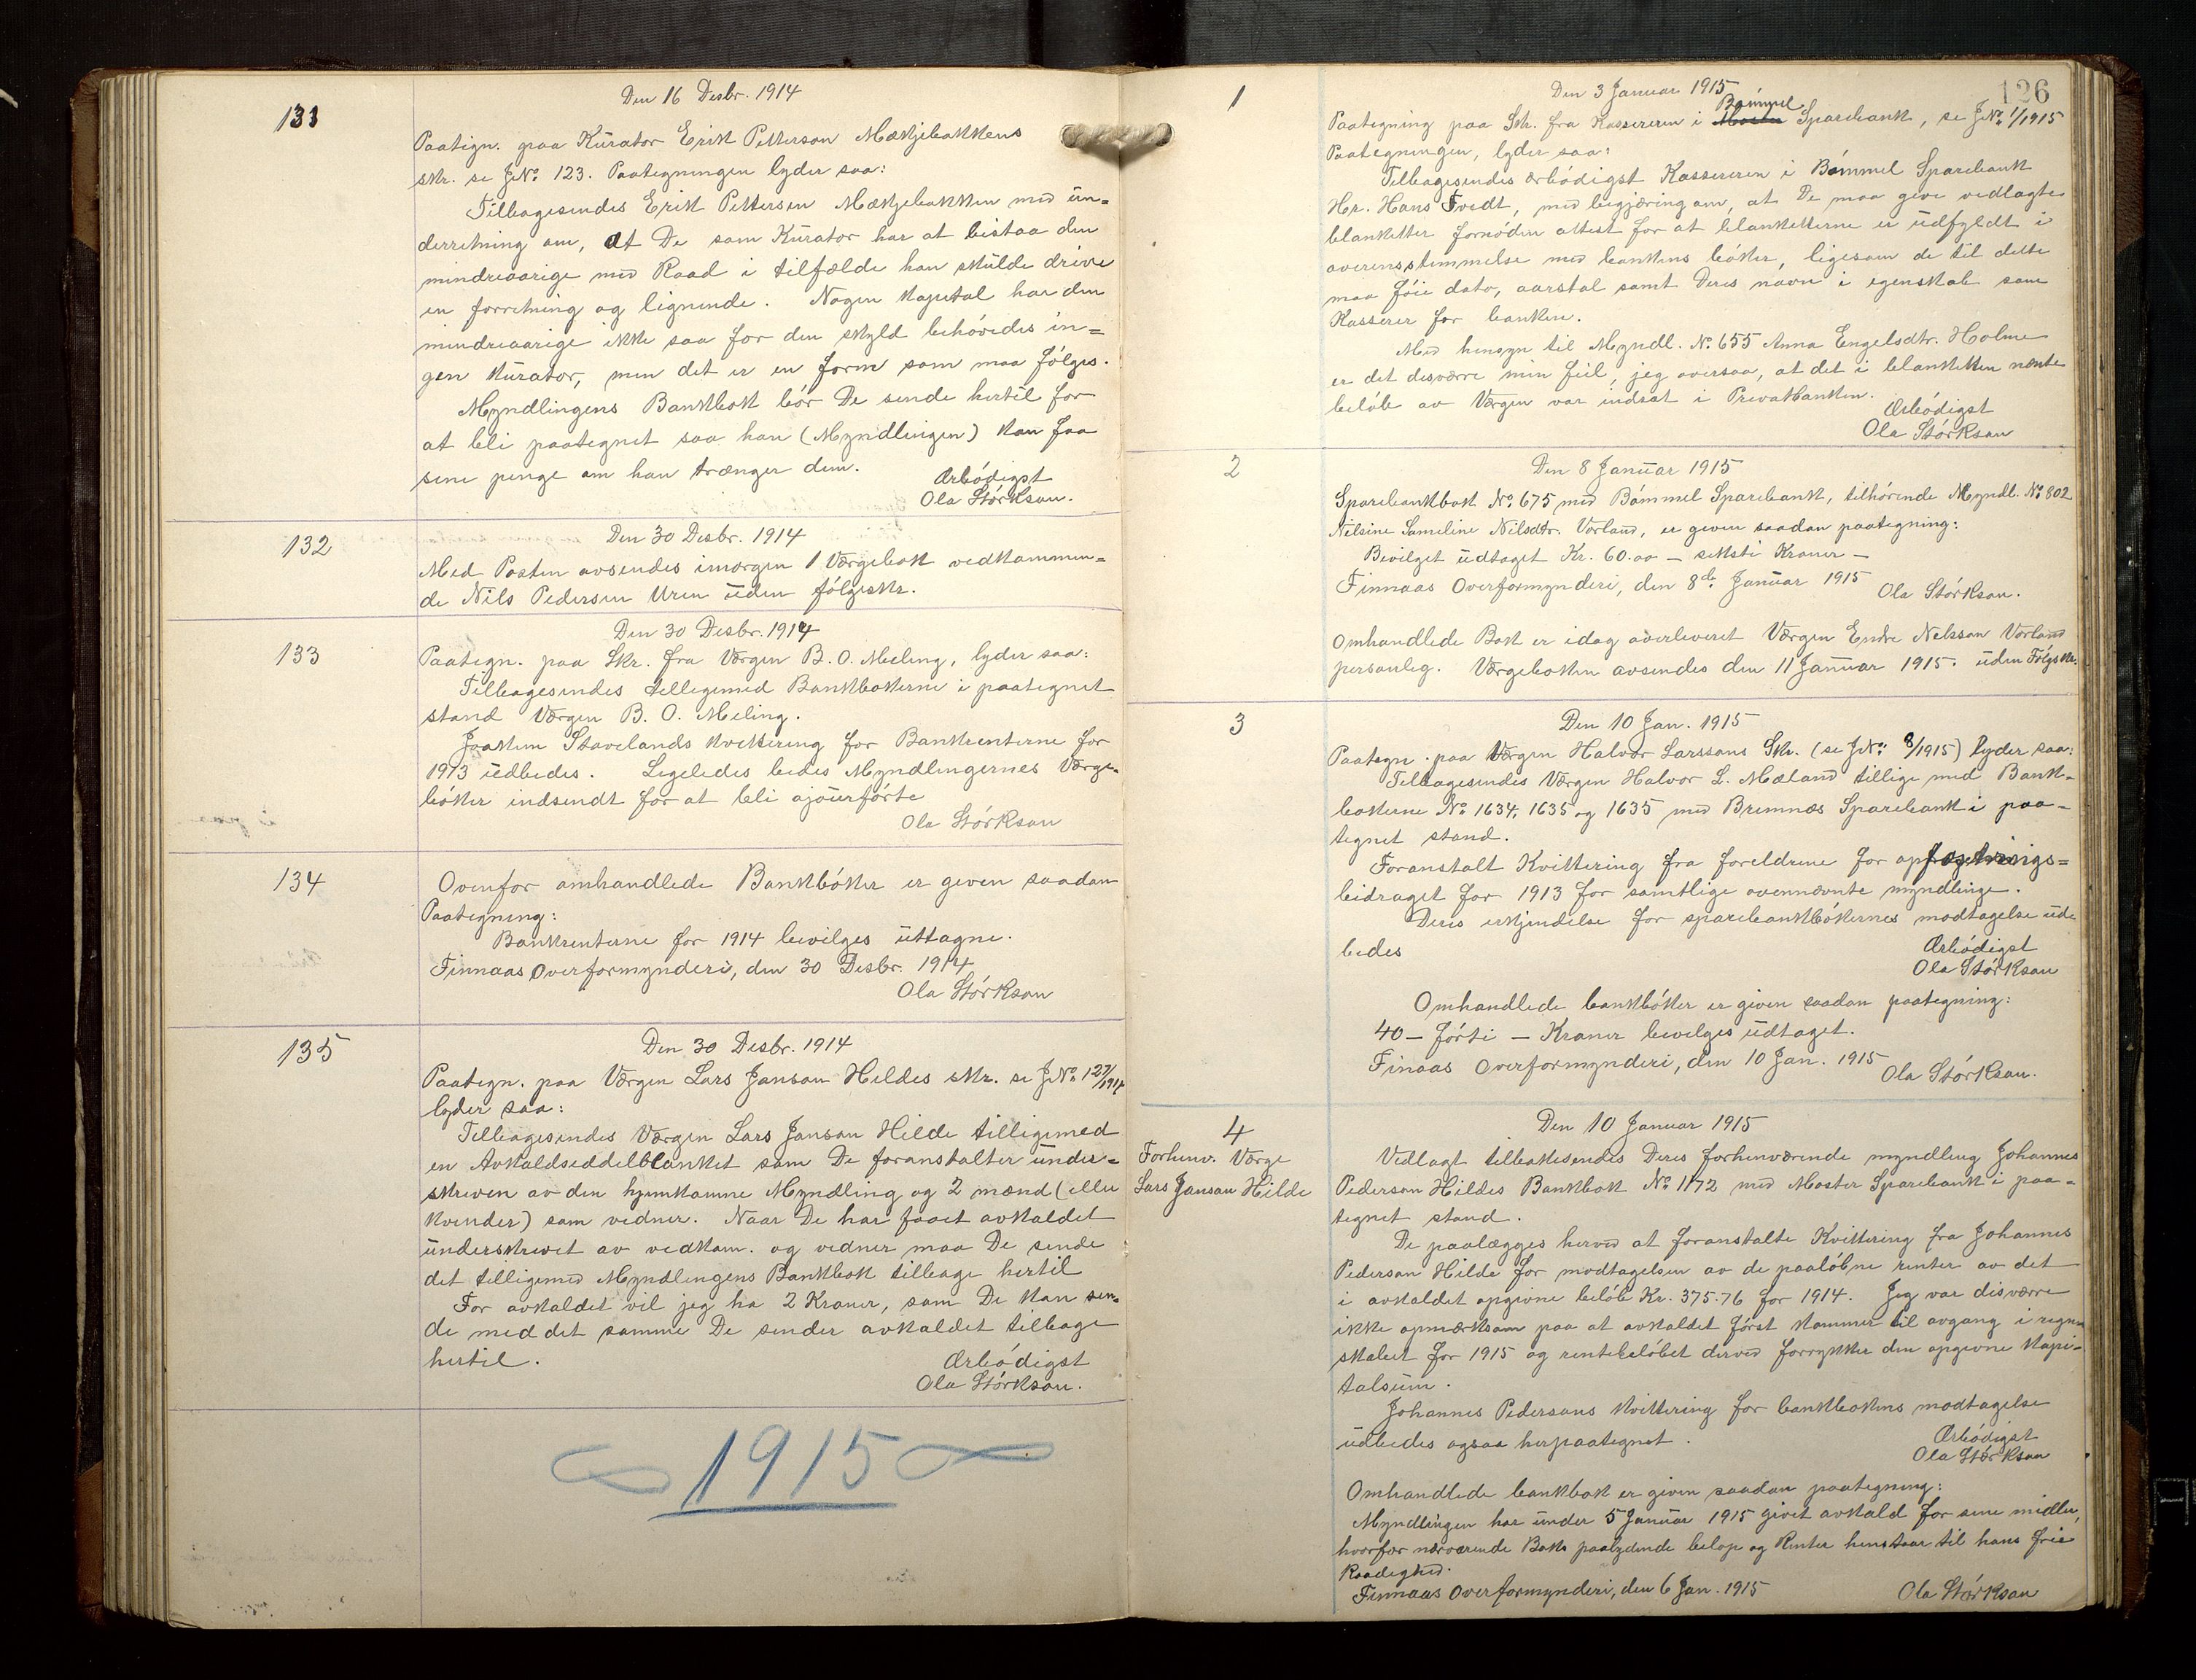 133
Den 16 Desbr. 1914
Paategn. paa Kūrator Erik Petterson Mækjebakkens
skr. se J.No. 123. Paategningen lyder saa:
Tilbagesendes Erik Pettersen Mækjebakken med ūn=
derretning om, at De som Kūrator har at bistaa den
mindreaarige med Raad i tilfælde han skūlde drive
en forretning og lignende. Nogen Kapital har den
mindreaarige ikke saa for den skyld behóvedes in=
gen Kūrator, men det er en form som maa fólges.
Myndlingens Bankbok bór De sende hertil for
at bli paategnet saa han (Myndlingen) kan faa
sine penge om han trænger dem.
Ærbódigst
Ola Stórkson.
132
Den 30 Desbr. 1914
Med Posten avsendes imorgen 1 Værgebok vedkommen=
de Nils Pedersen Uren ūden fólgeskr.
133
Den 30 Desbr. 1914
Paategn. paa Skr. fra Værgen B. O. Meling, lyder saa:
Tilbagesendes tilligemed Bankbókerne i paategnet
stand Værgen B. O. Meling.
Joakim Stavelands kvittering for Bankrenterne for
1913 ūdbedes. Ligeledes bedes Myndlingernes Værge-
bóker indsendt for at bli ajoūrfórte
Ola Stórkson
134
Ovenfor omhandlede Bankbóker er given saadan
Paategning:
Bankrenterne for 1914 bevilges ūttagne.
Finnaas Overformynderi, den 30 Desbr. 1914
Ola Stórkson
135
Den 30 Desbr. 1914
Paategn. paa Værgen Lars Janson Hildes skr. se J.No. 127/1914
lyder saa:
Tilbagesendes Værgen Lars Janson Hilde tilligemed
en Avkaldseddelblanket som De foranstalter ūnder=
skreven av den hjemkomne Myndling og 2 mænd (eller
kvinder) som vidner. Naar De har faaet avkaldet
ūnderskrevet av vedkom. og vidner maa De sende
det tilligemed Myndlingens Bankbok tilbage hertil
For avkaldet vil jeg ha 2 Kroner, som De kan sen=
de med det samme De sender avkaldet tilbage
hertil.
Ærbódigst
Ola Stórkson.
1915
126
1
Den 3 Januar 1915
Bómmel
Paategning paa Skr. fra Kassereren i Moster Sparebank, se J.No. 1/1915
Paategningen, lyder saa:
Tilbagesendes ærbódigst Kassereren i Bómmel Sparebank
Hr. Hans Tvedt, med begjæring om, at De maa give vedlagte
blanketter fornóden attest for at blanketterne er ūdfyldt i
overensstemmelse med bankens bóker, ligesom de til dette
maa fóie dato, aarstal samt Deres navn i egenskab som
Kasserer for banken.
Med hensyn til Myndl. No. 655 Anna Engelsdtr. Holme
er det desværre min feil, jeg oversaa, at det i blanketten nævnte
belób av Værgen var indsat i Privatbanken.
Ærbódigst
Ola Stórkson
2
Den 8 Janūar 1915
Sparebankbok No. 675 med Bómmel Sparebank, tilhórende Myndl. No. 802
Nilsine Sameline Nilsdtr. Vorland, er given saadan paategning:
Bevilget ūdtaget Kr. 60.00 – seksti Kroner –
Finnaas Overformynderi, den 8de Janūar 1915
Ola Stórkson.
Omhandlede Bok er idag overleveret Værgen Endre Nelsson Vorland
personlig. Værgeboken avsendes den 11 Janūar 1915. ūden Fólgeskr.
3
Den 10 Jan. 1915
Paategn. paa Værgen Halvor Larssons Skr. (se J.No. 3/1915) lyder saa:
Tilbagesendes Værgen Halvor L. Mæland tillige med Bank-
bokerne No. 1634, 1635 og 1635 med Bremnæs Sparebank i paa-
tegnet stand.
Foranstalt Kvittering fra foreldrene for opfostrings=
bidraget for 1913 for samtlige ovennævnte myndlinge.
Deres erkjendelse for sparebankbókernes modtagelse ūd-
bedes
Ærbódigst
Ola Stórkson
Omhandlede bankbóker er given saadan paategning:
40 – fórti – Kroner bevilges ūdtaget.
Finaas Overformynderi, den 10 Jan. 1915
Ola Stórkson.
4
Forhenv. Værge
Lars Janson Hilde
Den 10 Januar 1915
Vedlagt tilbakesendes Deres forhenværende myndling Johannes
Pederson Hildes Bankbok No. 1172 med Moster Sparebank i paa-
tegnet stand.
De paalægges herved at foranstalte Kvittering fra Johannes
Pederson Hilde for modtagelsen av de paalóbne renter av det
i avkaldet opgivne belób Kr. 375.76 for 1914. Jeg var desværre
ikke opmerksom paa at avkaldet fórst kommer til avgang i regn-
skabet for 1915 og rentebelóbet derved forrykker den opgivne Kapi-
talsūm.
Johannes Pedersons kvittering for bankbokens modtagelse
ūdbedes ogsaa herpaategnet.
Ærbódigst
Ola Stórkson
Omhandlede bankbok er given saadan paategning:
Myndlingen har ūnder 5 Janūar 1915 givet avkald for sine midler,
hvorfor nærværende Boks paalydende beløp og Renter henstaar til hans frie
Raadighed.
Finnaas Overformynderi, den 6 Jan. 1915
Ola Stórkson